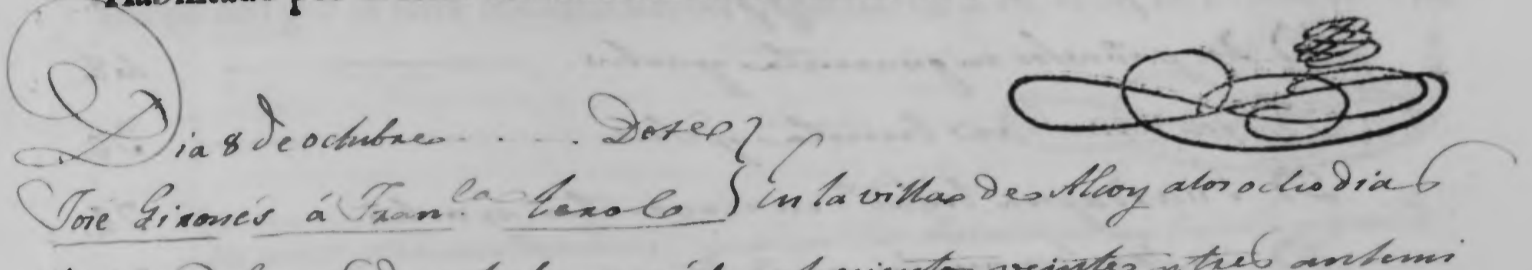 Habilitado por
Dia 8 de octubre . . . . Dote
José Gironés á Fran.ca Terol } En la villa de Alcoy a los ocho dias
veinte y tres ante mi